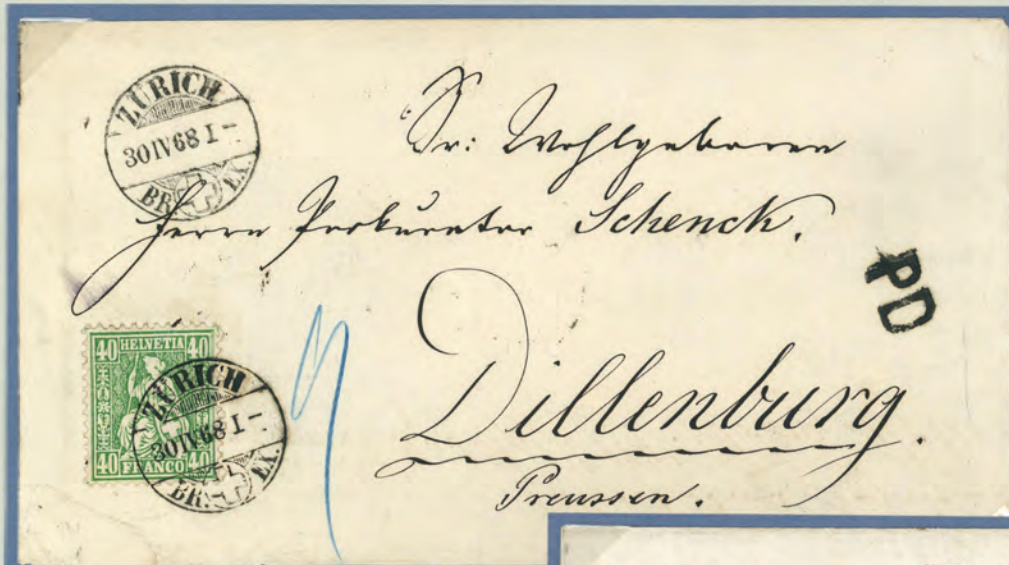 ZÜRICH
30 IV 68 I -
BR. EX.
Sr: Wohlgeboren
Herrn Prokurator Schenck.
PD
Dillenburg.
Preussen.
40 HELVETIA 40
40 FRANCO 40
ZÜRICH
30 IV 68 I -
BR. EX.